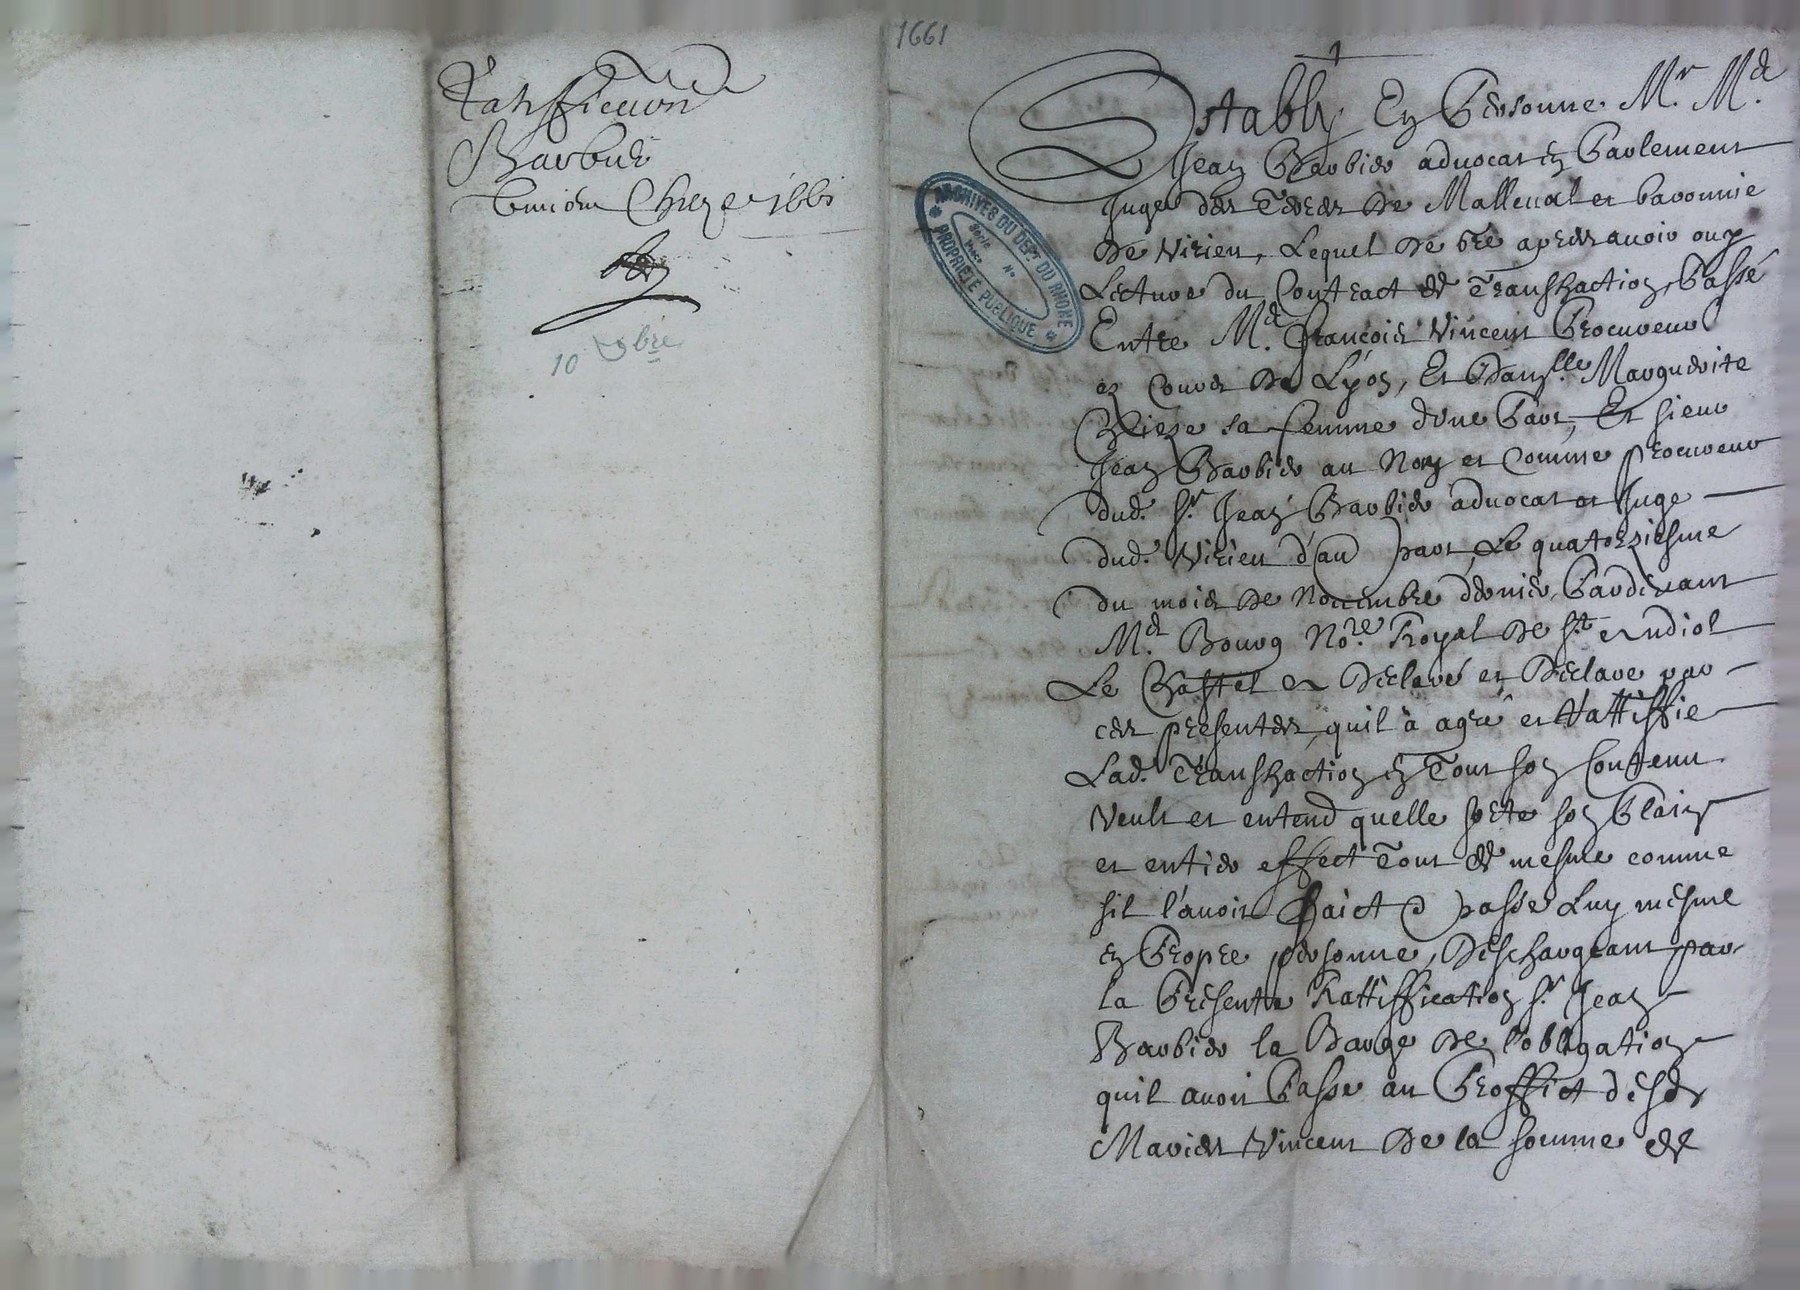 Ratiffication
Barbier
Chieze 1661
10 xbre
1661
Estably En Personne Mr Me
Jean Barbier advocat en Parlement
Juge des Terres de Mallleval et baronnie
de Virieu, Lequel de gré apres avoir ouy
Lecture du Contract de Transhaction Passé
Entre Me. François Vincent Procureur
es Cours de Lyon, Et Damlle Marguerite
Chieze sa femme d'une Part, Et sieur
Jean Barbier au Nom et Comme procureur
dud. Sr. Jean Barbier advocat et Juge
dud. Virieu d'au part, Le quatorziesme
du mois de Novembre dernier, Pardevant
Me. Bourg Nore. Royal de St Andiol
Le Chastel a Declaré et Declare par
ces presentes, quil à agréé et Rattiffie
Lad. Transhaction en Tout son Contenu
Veult et entend quelle sorte son Plain
et entier effect Tout de mesme comme
sil l'avoit faict & passée Luy mesme
en Propre personne, Deschargeant par
la Presente Rattiffication Sr Jean
Barbier la Barge de l'obligation
quil avoit Passe au Proffict desd
Mariés Vincent De la somme de
ARCHIVES DU DEPT. DU RHONE
PROPRIETE PUBLIQUE
Serie
No